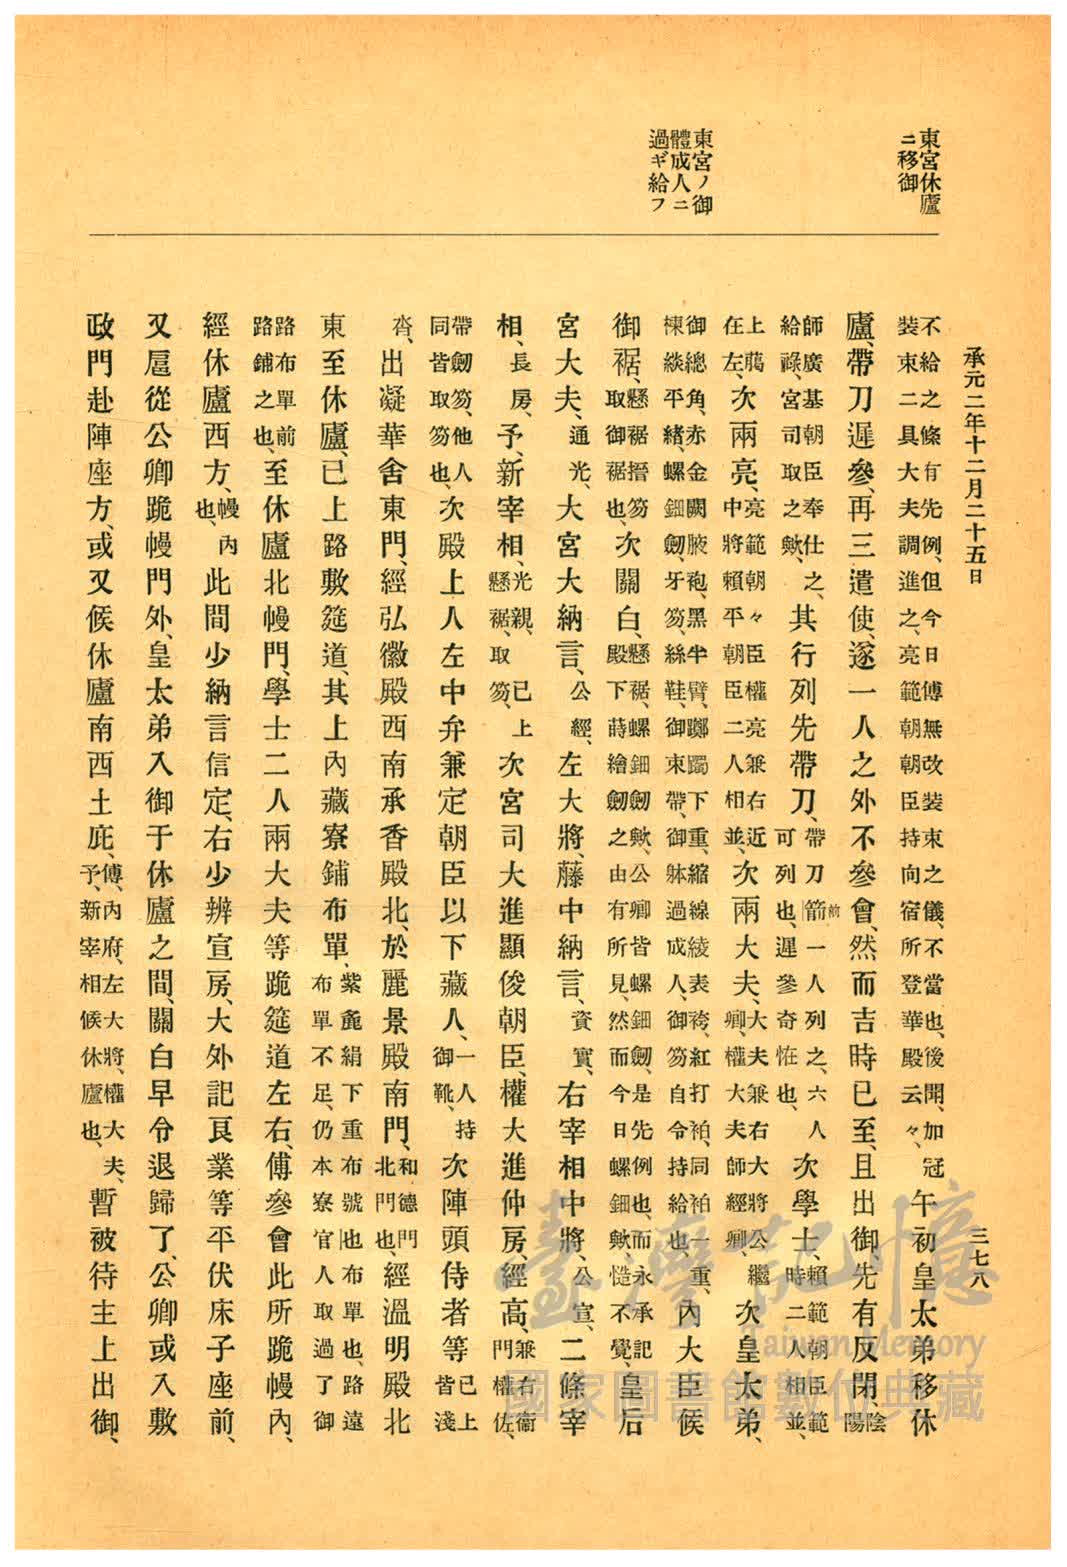 東宮休廬ニ移御
東宮ノ御體成人ニ過ギ給フ
承元二年十二月二十五日　三七八
不給之條有先例、但今日傅無改裝束之儀、不當也、後聞、加冠裝束二具大夫調進之、亮範朝朝臣持向宿所登華殿云々、午初皇太弟移休
廬、帶刀遲參、再三遣使、遂一人之外不參會、然而吉時已至、且出御、先有反閇、陰陽
師廣基朝臣奉仕之、給祿、宮司取之歟、其行列先帶刀、帶刀箭前一人列之、六人可列也、遲參奇恠也、次學士、賴範朝臣範時二人相並、
上﨟在左、次兩亮、亮範朝々臣權亮兼右近中將賴平朝臣二人相並、次兩大夫、大夫兼右大將公繼卿、權大夫師經卿、次皇太弟、
御總角、赤金闕腋袍、黑半臂、躑躅下重、縮線綾表袴、紅打衵、同衵一重、楝緂平緒、螺鈿劔、牙笏、絲鞋、御束帶、御躰過成人、御笏自令持給也、內大臣候
御裾、懸裾搢笏取御裾也、次關白、懸裾、螺鈿劔歟、公卿皆螺鈿劔、是先例也、而永承記殿下蒔繪劔之由有所見、然而今日螺鈿歟、慥不覺、皇后
宮大夫、通光、大宮大納言、公經、左大將、藤中納言、資實、右宰相中將、公宣、二條宰
相、長房、予、新宰相、光親、已上懸裾、取笏、次宮司大進顯俊朝臣、權大進仲房、經高、兼右衞門權佐、
帶劔笏、他人同皆取笏也、次殿上人左中弁兼定朝臣以下藏人、一人持御靴、次陣頭侍者等、已上皆淺
沓、出凝華舍東門、經弘徽殿西南承香殿北、於麗景殿南門、和德門北門也、經溫明殿北
東至休廬、已上路敷筵道、其上內藏寮鋪布單、紫麁絹下重布號也布單也、路遠布單不足、仍本寮官人取過了御
路布單前路鋪之也、至休廬北幔門、學士二人兩大夫等跪筵道左右、傅參會此所跪幔內、
經休廬西方、幔內也、此間少納言信定、右少辨宣房、大外記良業等平伏床子座前、
又扈從公卿跪幔門外、皇太弟入御于休廬之間、關白早令退歸了、公卿或入敷
政門赴陣座方、或又候休廬南西土庇、傅、內府、左大將、權大夫、予、新宰相候休廬也、暫被待主上出御、
臺灣記憶
Taiwan Memory
國家圖書館數位典藏